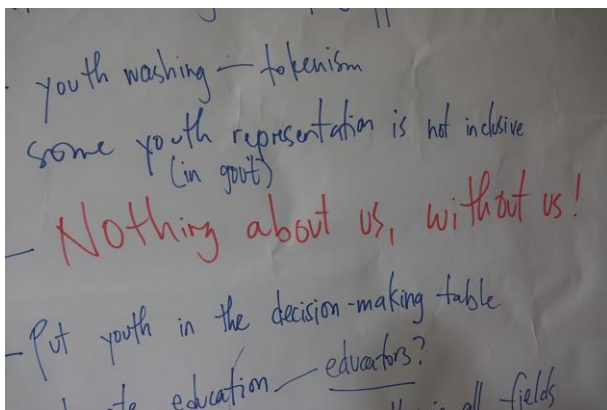 · youth washing — tokenism
some youth representation is not inclusive
(in gov't)
- Nothing about us, without us!
- Put youth in the decision-making table
education — educators?
in all fields